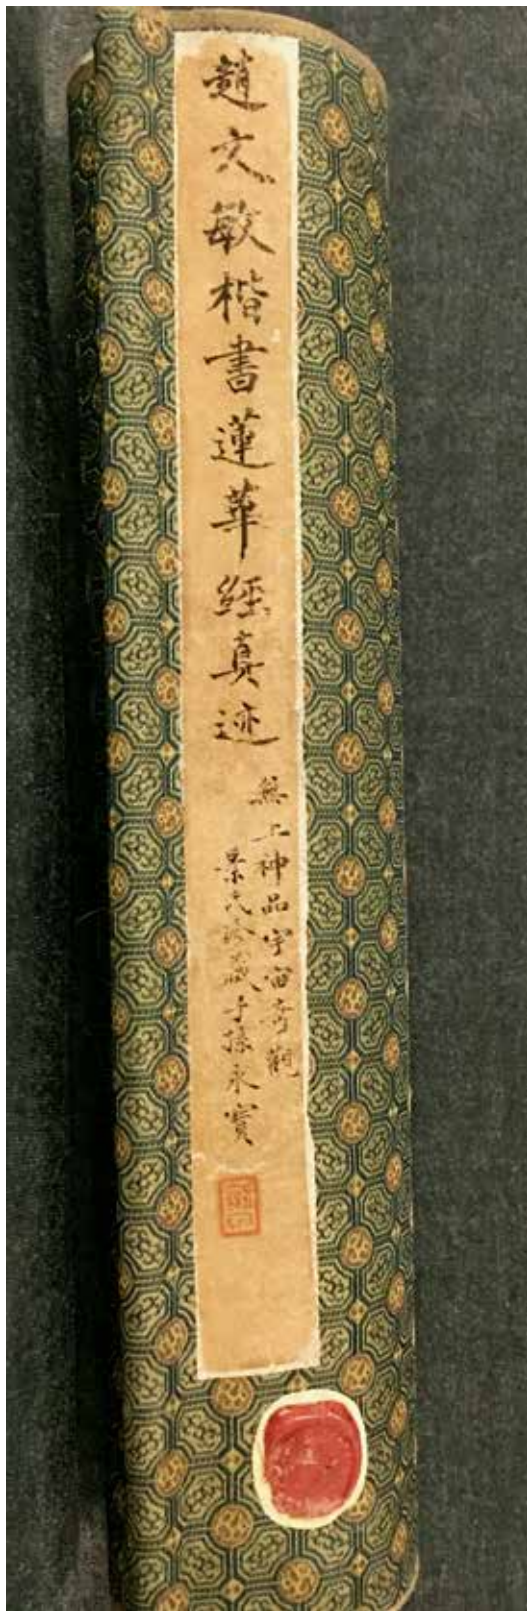 趙文敏楷書蓮華經真迹
無上神品宇宙奇觀
景氏珍藏子孫永寶